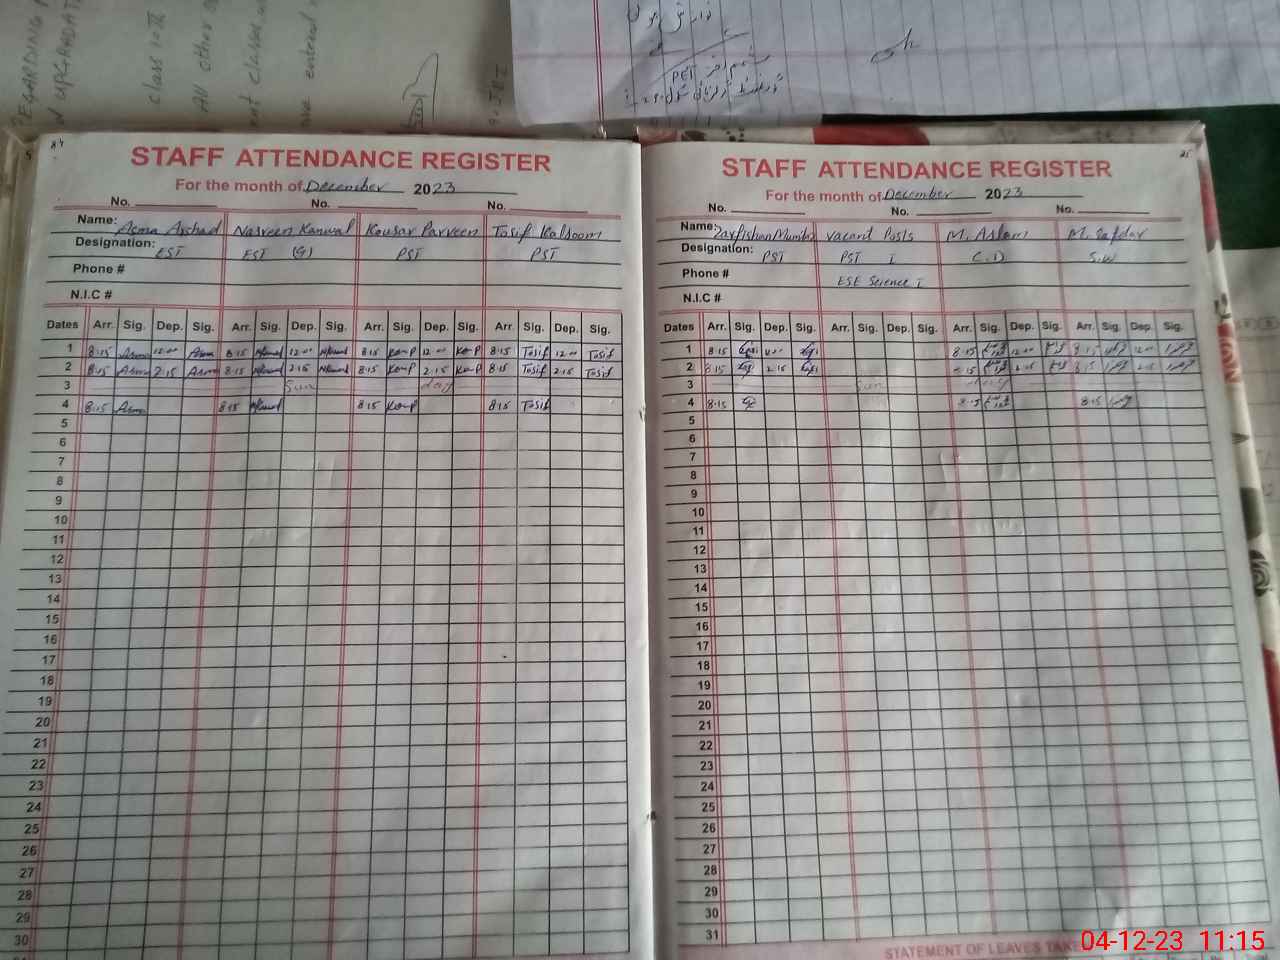 EGARDING
UPGRADAT
class 10th
All other
classes
entered
PET
84
STAFF ATTENDANCE REGISTER
For the month of December 2023
No. No. No.
Name: Asma Arshad Nasreen Kanwal Kousar Parveen Tasif Kalsoom
Designation: EST EST (G) PST PST
Phone #
N.I.C #
Dates Arr. Sig. Dep. Sig. Arr. Sig. Dep. Sig. Arr. Sig. Dep. Sig. Arr. Sig. Dep. Sig.
1 8·15 Asma 12·00 Asma 8·15 12·00 8·15 KouP 12·00 KouP 8·15 Tasif 12·00 Tasif
2 8·15 Asma 2·15 Asma 8·15 2·15 8·15 KouP 2·15 KouP 8·15 Tasif 2·15 Tasif
3 Sun day
4 8·15 Asma 8·15 8·15 KouP 8·15 Tasif
5
6
7
8
9
10
11
12
13
14
15
16
17
18
19
20
21
22
23
24
25
26
27
28
29
30
STAFF ATTENDANCE REGISTER
For the month of December 2023
No. No. No.
Name: Zarfishan Mumtaz vacant Posts M. Aslam M. Safdar
Designation: PST PST I C.D S.W
Phone # ESE Science I
N.I.C #
Dates Arr. Sig. Dep. Sig. Arr. Sig. Dep. Sig. Arr. Sig. Dep. Sig. Arr. Sig. Dep. Sig.
1 8·15 12·00 8·15 12·00 8·15 12·00
2 8·15 2·15 8·15 2·15 8·15 2·15
3 Sun day
4 8·15 8·15 8·15
5
6
7
8
9
10
11
12
13
14
15
16
17
18
19
20
21
22
23
24
25
26
27
28
29
30
31
STATEMENT OF LEAVES TAKE
04-12-23 11:15